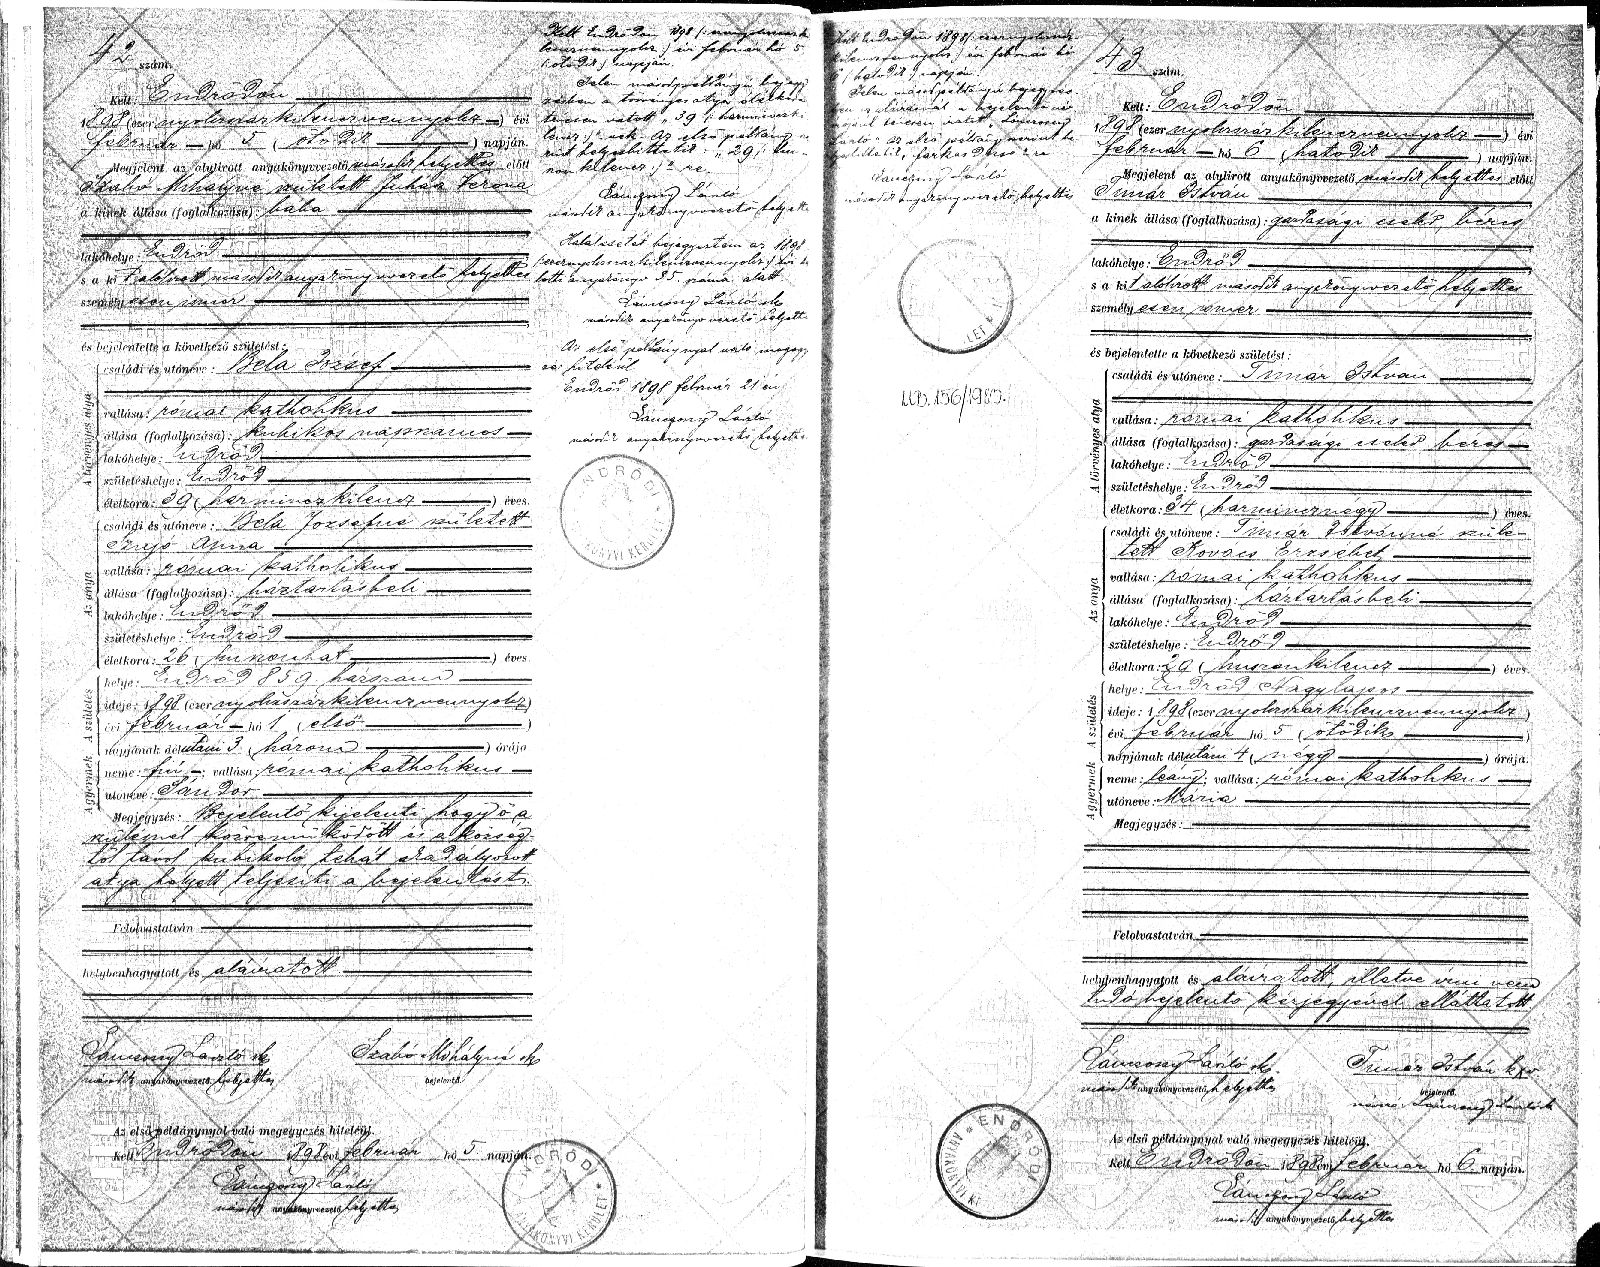 42 szám.
Kelt Endrődön
1898 (ezer nyolczszázkilenczvennyolcz) évi
február hó 5 (ötödik) napján.
Megjelent az alulírott anyakönyvvezető második helyettes előtt
Szabó Mihályné született Juhász Verona
a kinek állása (foglalkozása): bába
lakóhelye: Endrőd
s a kit alólirott második anyakönyvvezető helyettes
személyesen ismer
és bejelentette a következő születést:
A törvényes atya
családi és utóneve: Bela József
vallása: római katholikus
állása (foglalkozása): kubikos napszámos
lakóhelye: Endrőd
születéshelye: Endrőd
életkora: 39 (harminczkilencz) éves.
Az anya
családi és utóneve: Bela Józsefné született
Anna
vallása: római katholikus
állása (foglalkozása): háztartásbeli
lakóhelye: Endrőd
születéshelye: Endrőd
életkora: 26 (huszonhat) éves
A születés
helye: Endrőd 859 házszám
ideje: 1898 (ezer nyolczszázkilenczvennyolcz)
évi február hó 1 (első)
napjának délutáni 3 (három) órája
A gyermek
neme: fiú; vallása: római katholikus
utóneve: Sándor
Megjegyzés: Bejelentő kijelenti hogy ő a
szülésnél közreműködött és a község-
től távol kubikoló, tehát akadályozott
atya helyett teljesíti a bejelentést.
Felolvastatván
helybenhagyatott és aláiratott
László sk Szabó Mihályné sk
második anyakönyvvezető helyettes bejelentő.
Az első példánynyal való megegyezés hiteléül.
Kelt Endrődön 1898 évi február hó 5 napján.
László
második anyakönyvvezető helyettes
Kelt Endrődön 1898 (ezernyolczszáz
kilenczvennyolcz) évi február hó 5
(ötödik) napján.
Jelen másodpéldányú bejegy-
zésben a törvényes atya életkora
tévesen vétetett „39 (harminczki-
lencz)"-nek. Az első példány sze-
rint helyesbíttetik: „29 (hu-
szonkilencz)"-re.
László
második anyakönyvvezető helyettes
Halálesetét bejegyeztem az 1898
(ezernyolczszázkilenczvennyolcz) évi ha-
lotti anyakönyv 35. száma alatt.
László sk
második anyakönyvvezető helyettes
Az első példánynyal való megegye-
zés hiteléül
Endrőd 1898 február 21 én
László
második anyakönyvvezető helyettes
ENDRŐDI
ANYAKÖNYVI KERÜLET
ENDRŐDI
ANYAKÖNYVI KERÜLET
Kelt Endrődön 1898 (ezernyolczszáz-
kilenczvennyolcz) évi február hó
6 (hatodik) napján.
Jelen másodpéldányú bejegyzés-
László
második anyakönyvvezető helyettes
M.B. 156/1983.
43 szám.
Kelt: Endrődön
1898 (ezer nyolczszázkilenczvennyolcz) évi
február hó 6 (hatodik) napján.
Megjelent az alulírott anyakönyvvezető második helyettes előtt
Timár István
a kinek állása (foglalkozása): gazdasági cseléd, béres
lakóhelye: Endrőd
s a kit alólirott második anyakönyvvezető helyettes
személyesen ismer
és bejelentette a következő születést:
A törvényes atya
családi és utóneve: Timár István
vallása: római katholikus
állása (foglalkozása): gazdasági cseléd béres
lakóhelye: Endrőd
születéshelye: Endrőd
életkora: 34 (harmincznégy) éves.
Az anya
családi és utóneve: Timár Istvánné szüle-
tett Kovács Erzsébet
vallása: római katholikus
állása (foglalkozása): háztartásbeli
lakóhelye: Endrőd
születéshelye: Endrőd
életkora: 29 (huszonkilencz) éves
A születés
helye: Endrőd Nagylapos
ideje: 1898 (ezer nyolczszázkilenczvennyolcz)
évi február hó 5 (ötödik)
napjának délutáni 4 (négy) órája.
A gyermek
neme: leány; vallása: római katholikus
utóneve: Mária
Megjegyzés:
Felolvastatván
helybenhagyatott és aláiratott, illetve írni nem
tudó bejelentő kézjegyével elláttatott
László sk. Timár István
második anyakönyvvezető helyettes bejelentő.
László
Az első példánynyal való megegyezés hiteléül.
Kelt Endrődön 1898 évi február hó 6 napján.
László
második anyakönyvvezető helyettes
ENDRŐDI
ANYAKÖNYVI